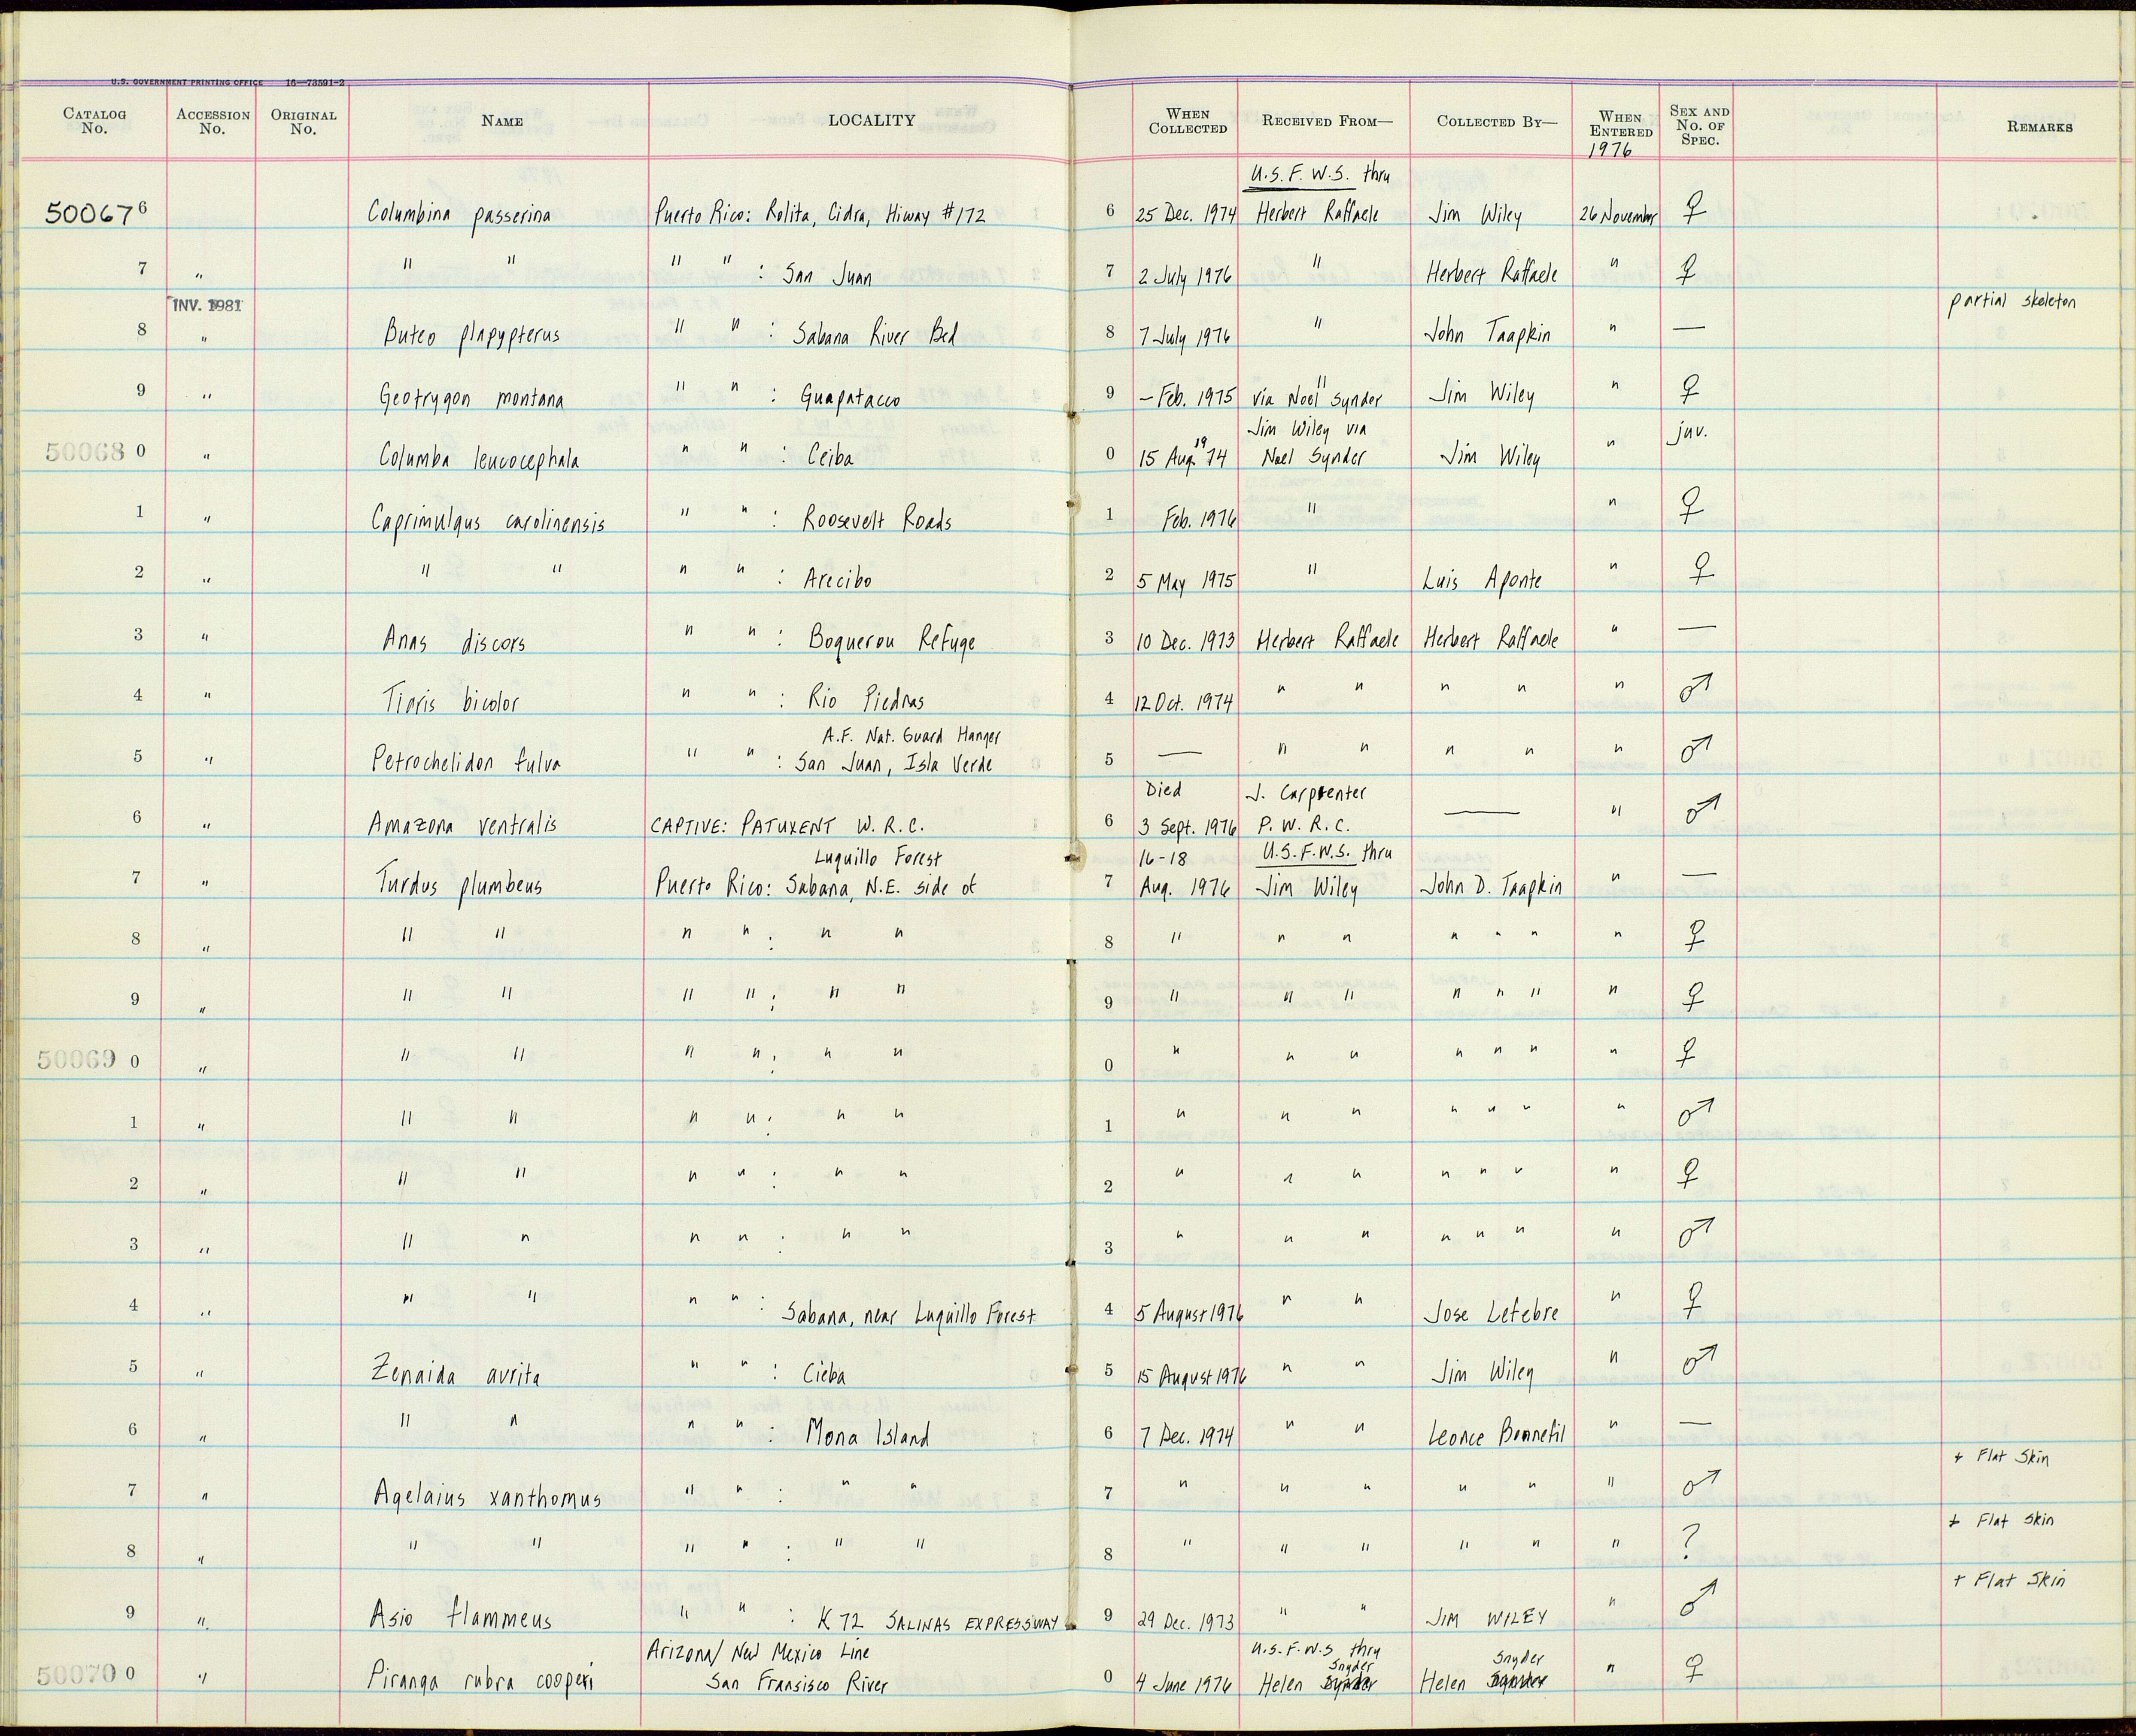 U.S. GOVERNMENT PRINTING OFFICE 16—73591-2
CATALOG No. ACCESSION No. ORIGINAL No. NAME LOCALITY WHEN COLLECTED RECEIVED FROM— COLLECTED BY— WHEN ENTERED SEX AND No. OF SPEC. REMARKS
1976
U.S.F.W.S. thru
500676 Columbina passerina Puerto Rico: Rolita, Cidra, Hiway #172 6 25 Dec. 1974 Herbert Raffaele Jim Wiley 26 November ♀
7 " " " " " : San Juan 7 2 July 1976 " Herbert Raffaele " ♀
INV. 1981 partial skeleton
8 " Buteo plapypterus " " : Sabana River Bed 8 7 July 1976 " John Taapkin " —
9 " Geotrygon montana " " : Guapatacco 9 — Feb. 1975 " via Noel Synder Jim Wiley " ♀
Jim Wiley via juv.
50068 0 " Columba leucocephala " " : Ceiba 0 15 Aug. 1974 Noel Synder Jim Wiley "
1 " Caprimulgus carolinensis " " : Roosevelt Roads 1 Feb. 1976 " " ♀
2 " " " " " : Arecibo 2 5 May 1975 " Luis Aponte " ♀
3 " Anas discors " " : Boquerou Refuge 3 10 Dec. 1973 Herbert Raffaele Herbert Raffaele " —
4 " Tiaris bicolor " " : Rio Piedras 4 12 Oct. 1974 " " " " " ♂
A.F. Nat. Guard Hanger
5 " Petrochelidon fulva " " : San Juan, Isla Verde 5 — " " " " " ♂
Died J. Carpenter
6 " Amazona ventralis CAPTIVE: PATUXENT W. R. C. 6 3 Sept. 1976 P. W. R. C. — " ♂
Luquillo Forest 16-18 U.S.F.W.S. thru
7 " Turdus plumbeus Puerto Rico: Sabana, N.E. side of 7 Aug. 1976 Jim Wiley John D. Taapkin " —
8 " " " " " : " " 8 " " " " " " " ♀
9 " " " " " : " " 9 " " " " " " " ♀
50069 0 " " " " " : " " 0 " " " " " " " ♀
1 " " " " " : " " 1 " " " " " " " ♂
2 " " " " " : " " 2 " " " " " " " ♀
3 " " " " " : " " 3 " " " " " " " ♂
4 " " " " " : Sabana, near Luquillo Forest 4 5 August 1976 " " Jose Lefebre " ♀
5 " Zenaida aurita " " : Cieba 5 15 August 1976 " " Jim Wiley " ♂
6 " " " " " : Mona Island 6 7 Dec. 1974 " " Leonce Bonnefil " —
+ Flat Skin
7 " Agelaius xanthomus " " : " " 7 " " " " " " ♂
+ Flat Skin
8 " " " " " : " " 8 " " " " " " ?
+ Flat Skin
9 " Asio flammeus " " : K 72 SALINAS EXPRESSWAY 9 29 Dec. 1973 " " JIM WILEY " ♂
Arizona/ New Mexico Line U.S.F.W.S thru
Snyder Snyder
50070 0 " Piranga rubra cooperi San Fransisco River 0 4 June 1976 Helen Synder Helen " ♀